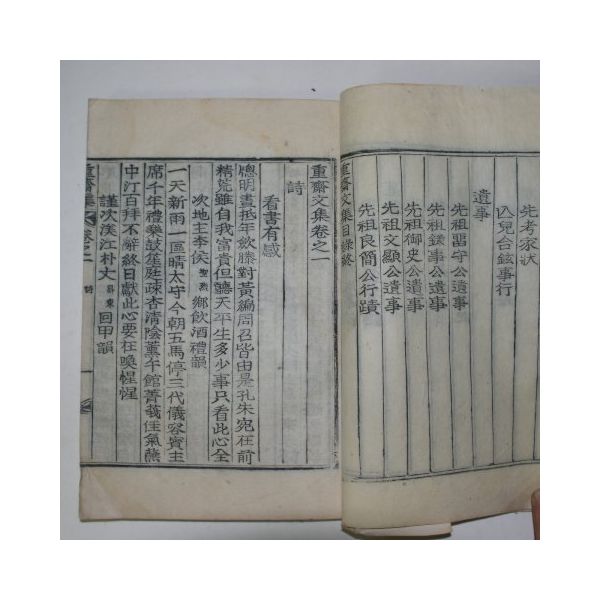 先考家狀
亡兒台鉉事行
遺事
先祖留守公遺事
先祖錄事公遺事
先祖御史公遺事
先祖文顯公遺事
先祖良簡公行蹟
重齋文集目錄終
重齋文集卷之一
詩
看書有感
聰明晝抵年飮滕對黃編周召皆由是孔朱宛在前
精荒雖自我富貴但聽天平生多少事只看此心全
次地主李侯聖烈鄕飮酒禮韻
一天新雨一區晴太守今朝五馬停三代儀容賓主
席千年禮樂鼓笙庭疎杏清陰薰午館菁莪佳氣藹
中汀百拜不辭終日獻此心要在喚惺惺
謹次渼江朴丈昇東回甲韻
重齋集 卷之一 詩